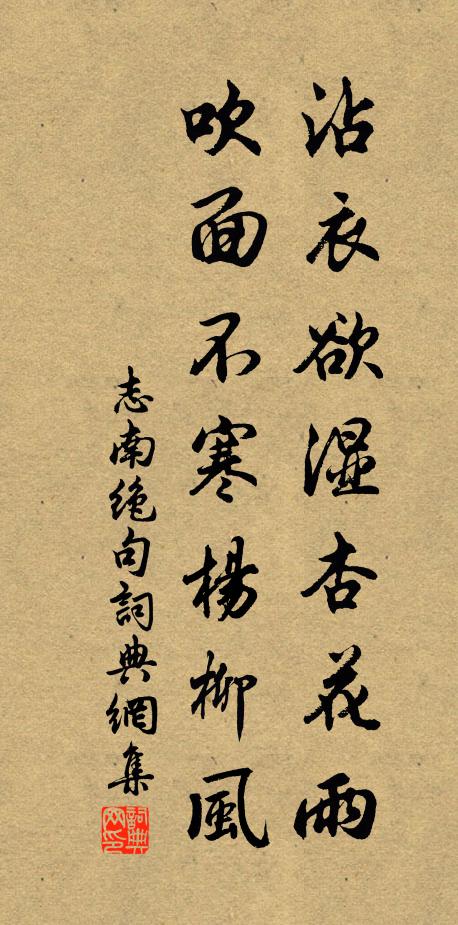 沾衣欲濕杏花雨
吹面不寒楊柳風
志南絶句詞典網集
詞典網印